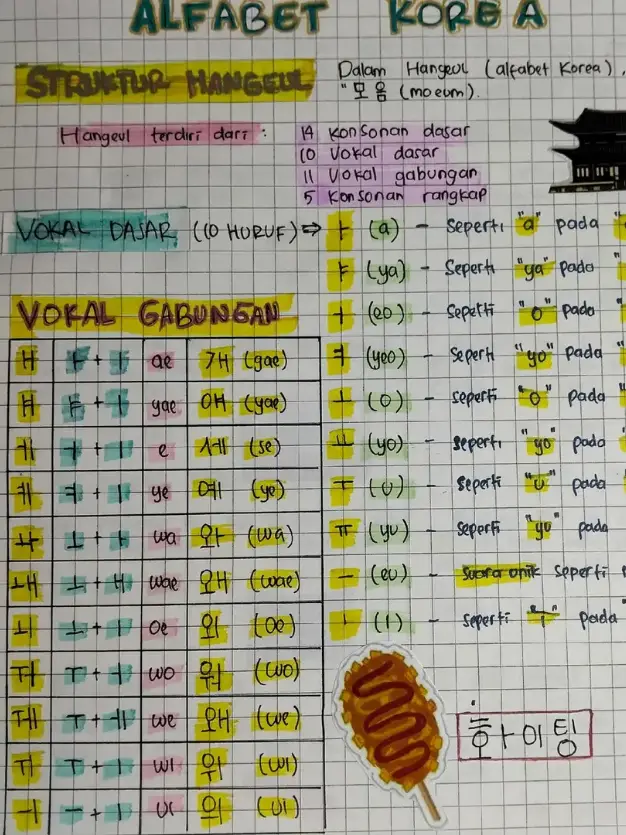 ALFABET KOREA
STRUKTUR HANGEUL
Dalam Hangeul (alfabet Korea),
"모음 (moeum).
Hangeul terdiri dari :
14 konsonan dasar
10 Vokal dasar
11 Vokal gabungan
5 Konsonan rangkap
VOKAL DASAR (10 HURUF) ⇒
ㅏ (a) - Seperti "a" pada "
ㅑ (ya) - Seperti "ya" pado "
ㅓ (eo) - Seperti "o" pado "
ㅕ (yeo) - Seperti "yo" pada "
ㅗ (o) - seperti "o" pada "
ㅛ (yo) - seperti "yo" pada "
ㅜ (u) - seperti "u" pada "
ㅠ (yu) - seperti "yu" pada
ㅡ (eu) - suara unik seperti
ㅣ (i) - seperti "i" pada "
VOKAL GABUNGAN
ㅐ ㅏ + ㅣ ae 개 (gae)
ㅒ ㅑ + ㅣ yae 얘 (yae)
ㅔ ㅓ + ㅣ e 세 (se)
ㅖ ㅕ + ㅣ ye 예 (ye)
ㅘ ㅗ + ㅏ wa 와 (wa)
ㅙ ㅗ + ㅐ wae 왜 (wae)
ㅚ ㅗ + ㅣ oe 외 (oe)
ㅝ ㅜ + ㅓ wo 워 (wo)
ㅞ ㅜ + ㅔ we 왜 (we)
ㅟ ㅜ + ㅣ wi 위 (wi)
ㅢ ㅡ + ㅣ ui 의 (ui)
화이팅